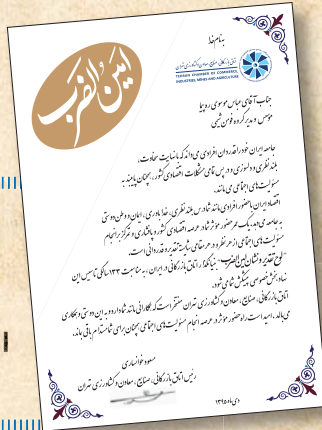 به نام خدا
امین الضرب
اتاق بازرگانی، صنایع، معادن و کشاورزی تهران
TEHRAN CHAMBER OF COMMERCE,
INDUSTRIES, MINES AND AGRICULTURE
جناب آقای عباس موسوی رهپیما
موسس و مدیر گروه فومن شیمی
جامعه ایران خود را قدردان افرادی می‌داند که با نهایت سخاوت،
بلندنظری و دلسوزی و در پس تمامی مشکلات اقتصادی کشور، همچنان پایبند به
مسئولیت‌های اجتماعی می‌مانند.
اقتصاد ایران با حضور افرادی مانند شما درس بلندنظری، خداباوری، ایمان و وطن دوستی
به جامعه می‌دهد. یک عمر حضور موثر شما در عرصه اقتصادی کشور و پافشاری و تمرکز بر انجام
مسئولیت‌های اجتماعی از هر نظر و در هر مقامی، شایسته تقدیر و قدردانی است.
"لوح تقدیر و نشان امین الضرب" بنیانگذار اتاق بازرگانی در ایران، به مناسبت ۱۳۳ سالگی تاسیس این
نهاد بخش خصوصی پیشکش شما می‌شود.
اتاق بازرگانی، صنایع، معادن و کشاورزی تهران مفتخر است که به نگارانی مانند شما دارد و به این دوستی و همکاری
می‌بالد. امید است راه حضور موثر در عرصه انجام مسئولیت‌های اجتماعی همچنان برای شما مستدام باقی بماند.
مسعود خوانساری
رئیس اتاق بازرگانی، صنایع، معادن و کشاورزی تهران
دی ماه ۱۳۹۵